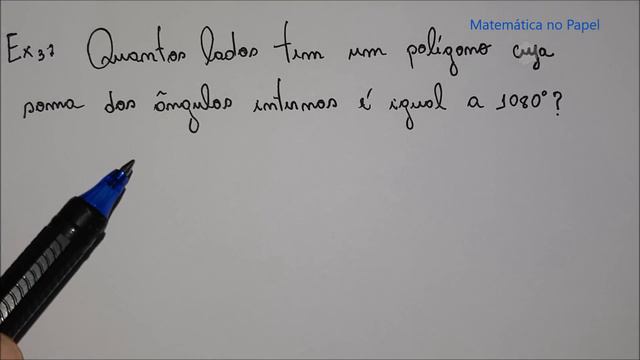 Matemática no Papel
Ex3: Quantos lados tem um polígono cuja
soma dos ângulos internos é igual a 1080°?